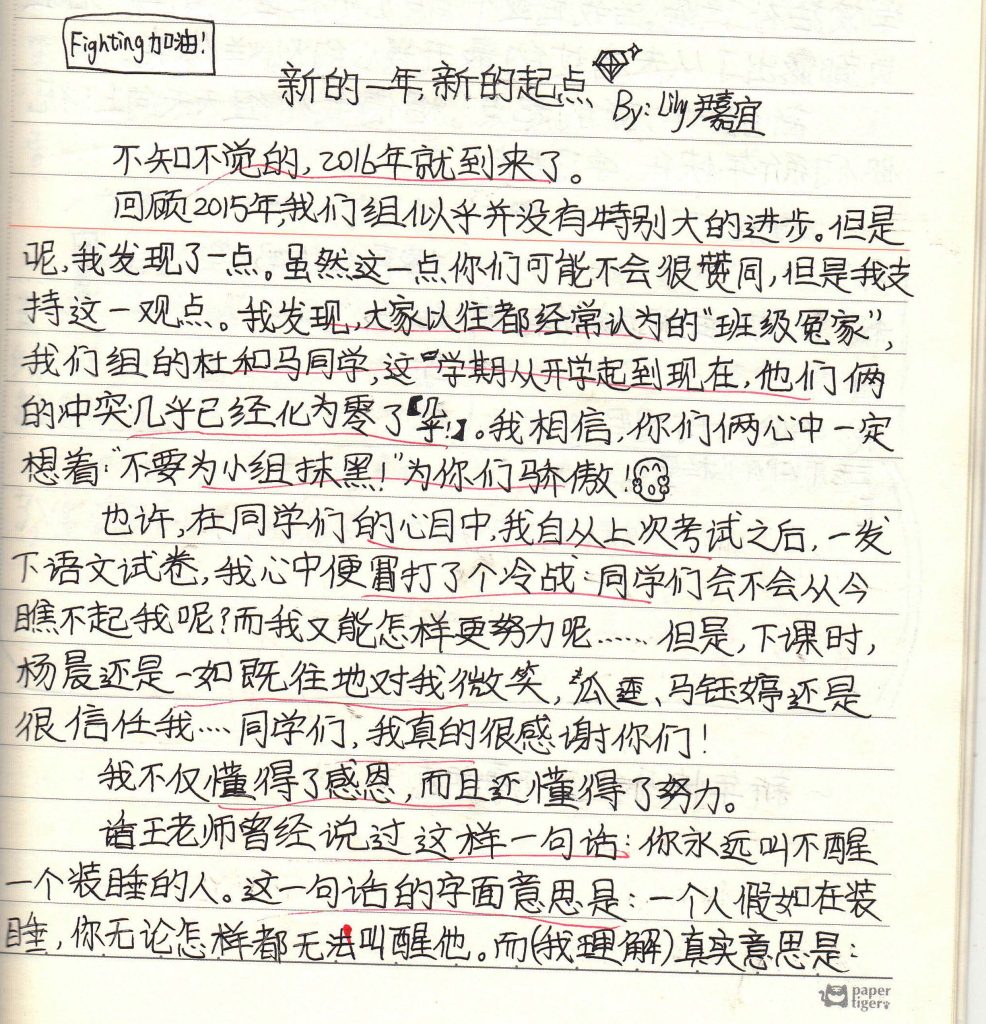 Fighting加油!
新的一年,新的起点
By: Lily 尹嘉宜
不知不觉的,2016年就到来了。
回顾2015年我们组似乎并没有特别大的进步。但是
呢,我发现了一点。虽然这一点你们可能不会很赞同,但是我支
持这一观点。我发现,大家以往都经常认为的“班级冤家”,
我们组的杜和马同学,这一学期从开学起到现在,他们俩
的冲突几乎已经化为零了【几乎!】。我相信,你们俩心中一定
想着:“不要为小组抹黑!”为你们骄傲!
也许,在同学们的心目中,我自从上次考试之后,一发
下语文试卷,我心中便冒打了个冷战:同学们会不会从今
瞧不起我呢?而我又能怎样更努力呢…… 但是,下课时,
杨晨还是一如既往地对我微笑,、马钰婷还是
很信任我…. 同学们,我真的很感谢你们!
我不仅懂得了感恩,而且还懂得了努力。
诸王老师曾经说过这样一句话:你永远叫不醒
一个装睡的人。这一句话的字面意思是:一个人假如在装
睡,你无论怎样都无法叫醒他。而(我理解)真实意思是:
paper
tiger